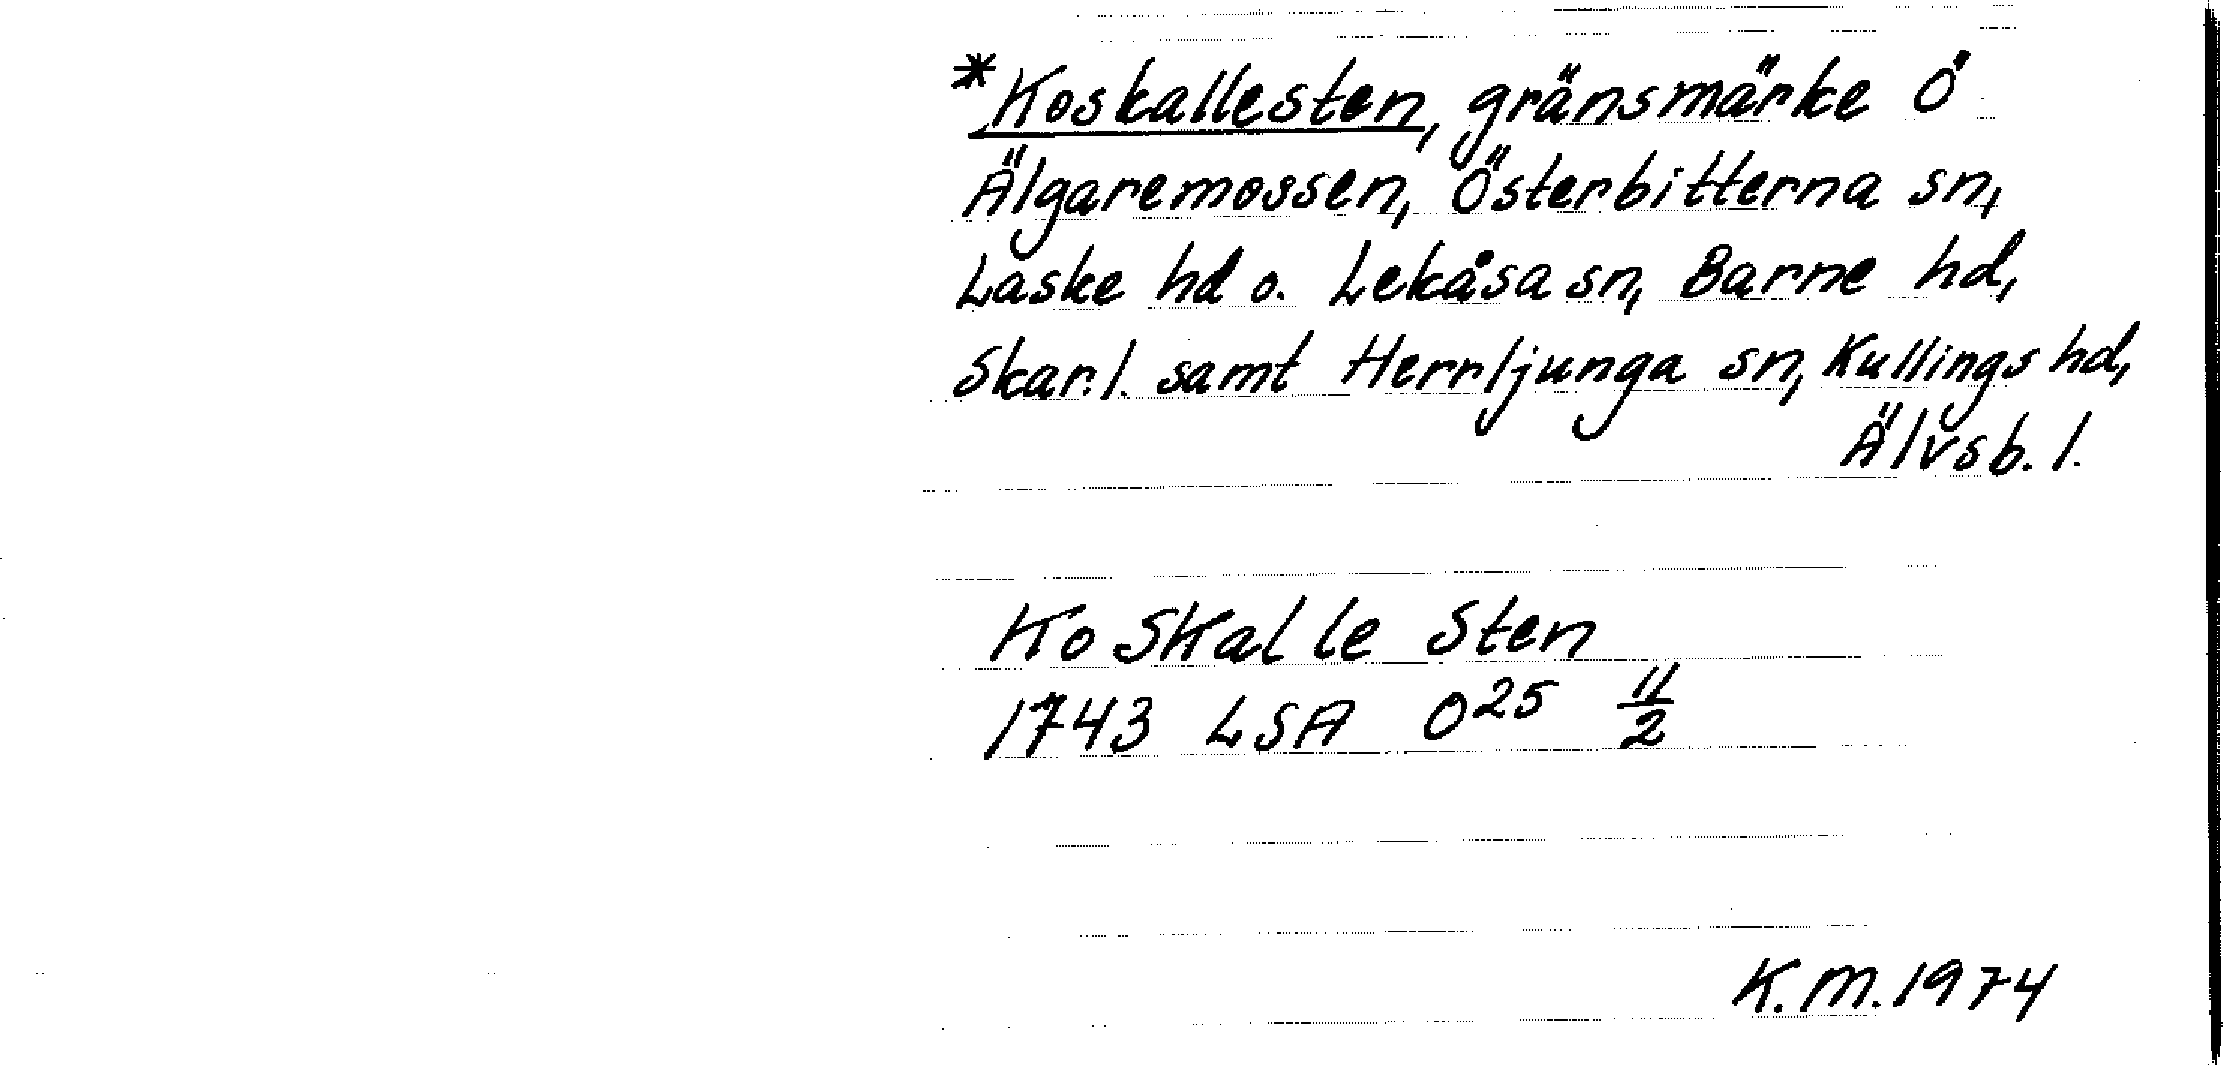 *Koskallesten, gränsmärke Ö
Älgaremossen, Österbitterna sn,
Laske hd o. Lekåsa sn, Barne hd,
Skar. l. samt Herrljunga sn, Kullings hd,
Älvsb. l.
Ko SKalle Sten
1743 LSA O25 11/2
K.M. 1974